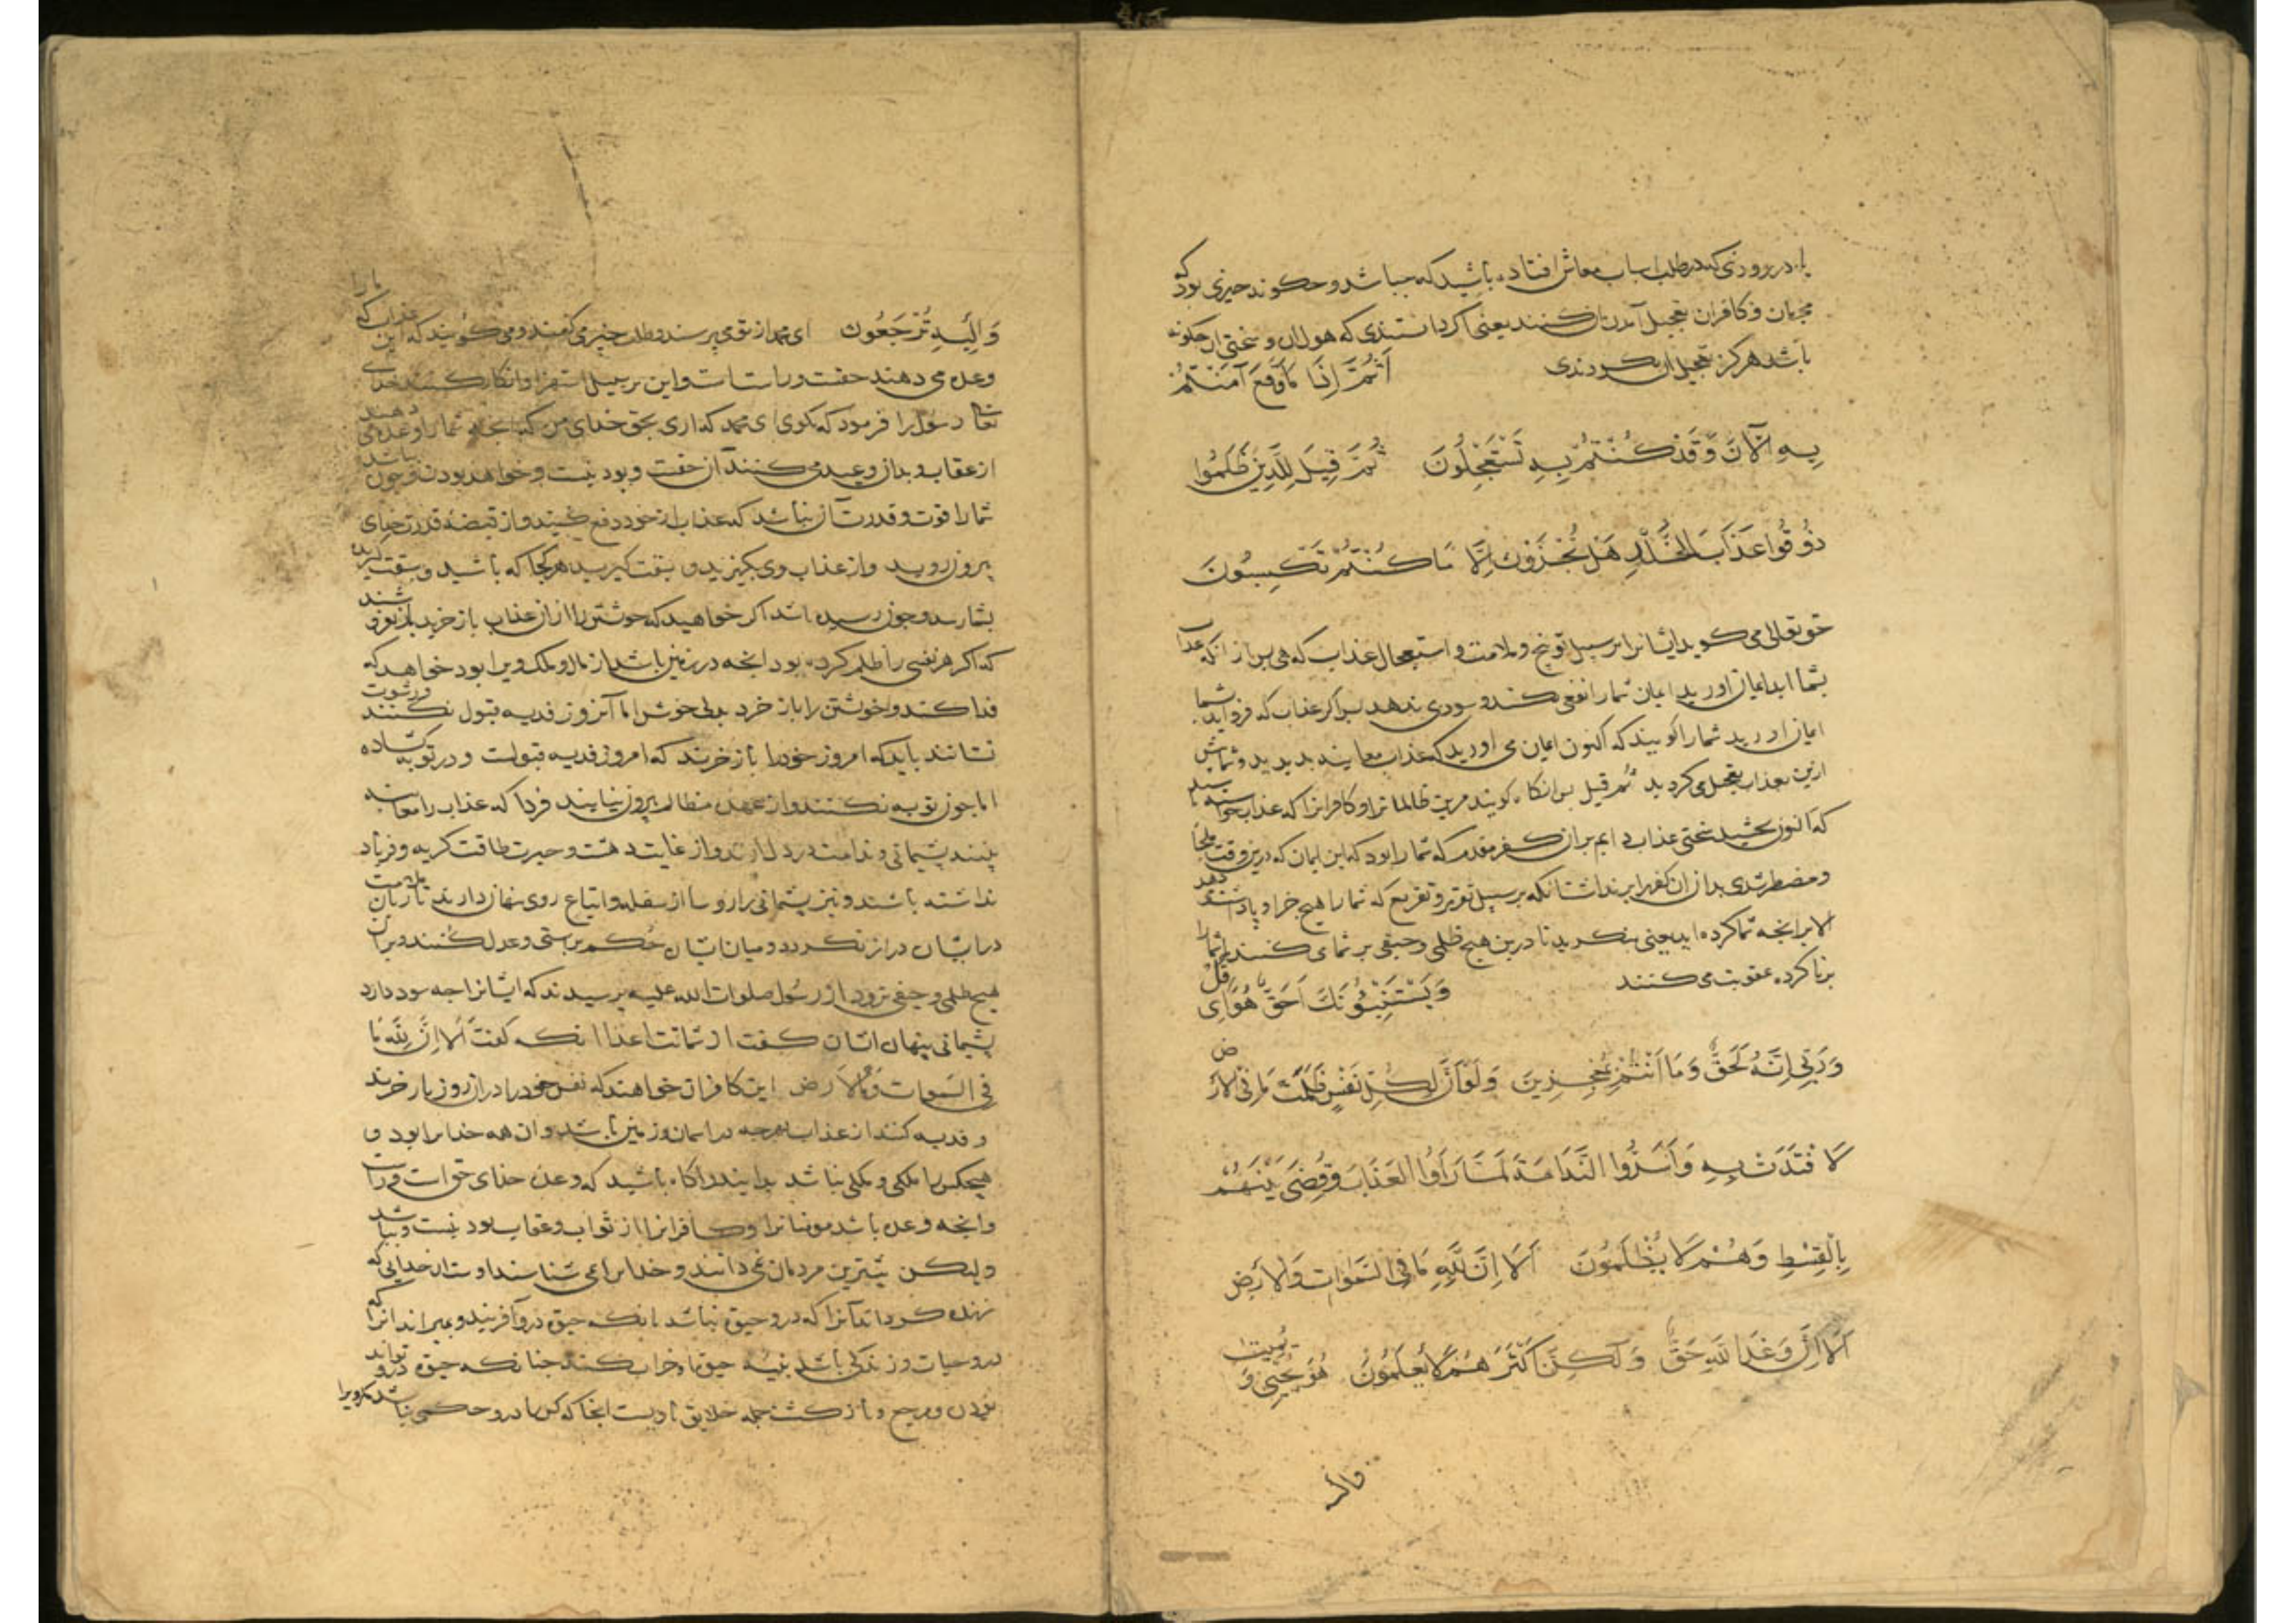 یا در روزی که در طلب اسباب معاش افتاده باشید که چه باشد و چگونه چیزی بود که
مجرمان و کافران تعجیل آمدن آن کنند یعنی اگر دانستندی که هول آن و سختی آن چگونه
باشد هرگز تعجیل آن نکردندی اَثُمَّ اِذَا مَا وَقَعَ آمَنْتُمْ
بِهِ آلْآنَ وَقَدْ كُنْتُمْ بِهِ تَسْتَعْجِلُونَ ثُمَّ قِيلَ لِلَّذِينَ ظَلَمُوا
ذُوقُوا عَذَابَ الْخُلْدِ هَلْ تُجْزَوْنَ اِلَّا مَا كُنْتُمْ تَكْسِبُونَ
حق تعالی می کوید ایشانرا بر سبیل توبیخ و ملامت و استعجال عذاب که هی پس از آنکه عذاب
بشما آید ایمان آورید ایمان شما را نفعی نکند و سودی ندهد پس اکر عذاب که فرو آید شما
ایمان آورید شما را کویند که اکنون ایمان می آورید که عذاب معاینه بدیدید و شما پیش
ازین بعذاب تعجیل می کردید ثم قیل پس آنکاه کویند مرین ظالمانرا و کافرانرا که عذاب
که اکنون بچشید سختی عذاب دایم بر آن کفر مقدم که شما را بود که این ایمان که درین وقت ملجأ
و مضطر شدی بد از ان کفر بر سبیل تقریر و تقریع که شما را هیچ جزا و پاداشت دهند
الا بر آنچه شما کرده اید یعنی بنکرید تا درین هیچ ظلمی و حیفی بر شما می کنند یا شما را
بر ناکرده عقوبت می کنند وَيَسْتَنْبِئُونَكَ اَحَقٌّ هُوَ قُلْ اِی
وَرَبِّي اِنَّهُ لَحَقٌّ وَمَا اَنْتُمْ بِمُعْجِزِينَ وَلَوْ اَنَّ لِكُلِّ نَفْسٍ ظَلَمَتْ مَا فِي الْاَرْضِ
لَافْتَدَتْ بِهِ وَاَسَرُّوا النَّدَامَةَ لَمَّا رَاَوُا الْعَذَابَ وَقُضِيَ بَيْنَهُمْ
بِالْقِسْطِ وَهُمْ لَا يُظْلَمُونَ اَلَا اِنَّ لِلَّهِ مَا فِي السَّمٰوَاتِ وَالْاَرْضِ
اَلَا اِنَّ وَعْدَ اللَّهِ حَقٌّ وَلَكِنَّ اَكْثَرَهُمْ لَا يَعْلَمُونَ هُوَ يُحْيِي وَ يُمِيتُ
وَاِلَيْهِ تُرْجَعُونَ ای محمد از تو می پرسند و طلب خبر می کنند و می کویند که این عذاب که ما را
وعده می دهند حقست و راست است و این بر سبیل استهزا و انکار کنند خدای
تعالی رسول را فرمود که بکوی ای محمد که آری بحق خدای من که آنچه شما را وعده می دهند
از عقاب و بدان وعید می کنند آن حقست و بودنیست و خواهد بودن و چون
شما را قوت و قدرت آن نباشد که عذاب از خود دفع کنید و از قبضه قدرت خدای
بیرون روید و از عذاب وی بکریزید و سبقت کیرید هر کجا که باشید
بشما رسد و چون رسیده باشد اکر خواهید که خویشتن را از آن عذاب باز خرید
که اکر هر نفسی را ظلم کرده بود آنچه در زمین باشد از مال و ملک ویرا بود خواهد که
فدا کند و خویشتن را باز خرد اما آنروز فدیه قبول نکنند و رشوت
نستانند باید که امروز خود را باز خرند که امروز فدیه قبولست و در توبه کشاده
اما چون توبه نکنند و از عهده مظالم بیرون نیایند فردا که عذاب را معاینه
ببینند پشیمانی و ندامت در دل دارند و از غایت دهشت و حیرت طاقت کریه و فریاد
نداشته باشند و نیز پشیمانی را رؤسا از سفله و اتباع روی نهان دارند تا زبان ملامت
در ایشان دراز نکردد و میان ایشان حکم براستی و عدل کنند و بر ایشان
هیچ ظلمی و حیفی نرود از رسول صلوات الله علیه پرسیدند که ایشانرا چه سود دارد
پشیمانی پنهان ایشان کفت از شماتت اعدا آنکه کفت اَلَا اِنَّ لِلَّهِ مَا
فِي السَّمٰوَاتِ وَالْاَرْضِ این کافران خواهند که نفس خود را در آن روز باز خرند
و فدیه کنند از عذاب بهرچه در آسمان و زمین باشد و آن همه خدایرا بود و
هیچکس را ملکی و ملکی نباشد بدانید و آکاه باشید که وعده خدای حق است و راست
و آنچه وعده باشد مومنانرا و کافرانرا از ثواب و عقاب بودنیست و بباشد
ولیکن بیشترین مردمان نمی دانند و خدایرا نمی شناسند اوست آن خدایی که
زنده کرداند آنرا که درو حیوة نباشد بآنکه حیوة درو آفریند و بمیراند آنرا که
درو حیات و زندکی باشد بنیه حیوة او خراب کند چنانکه حیوة درو نتواند
بودن و مرجع و بازکشت جمله خلایق با ویست آنجا که کس را درو حکمی نباشد مکر ویرا